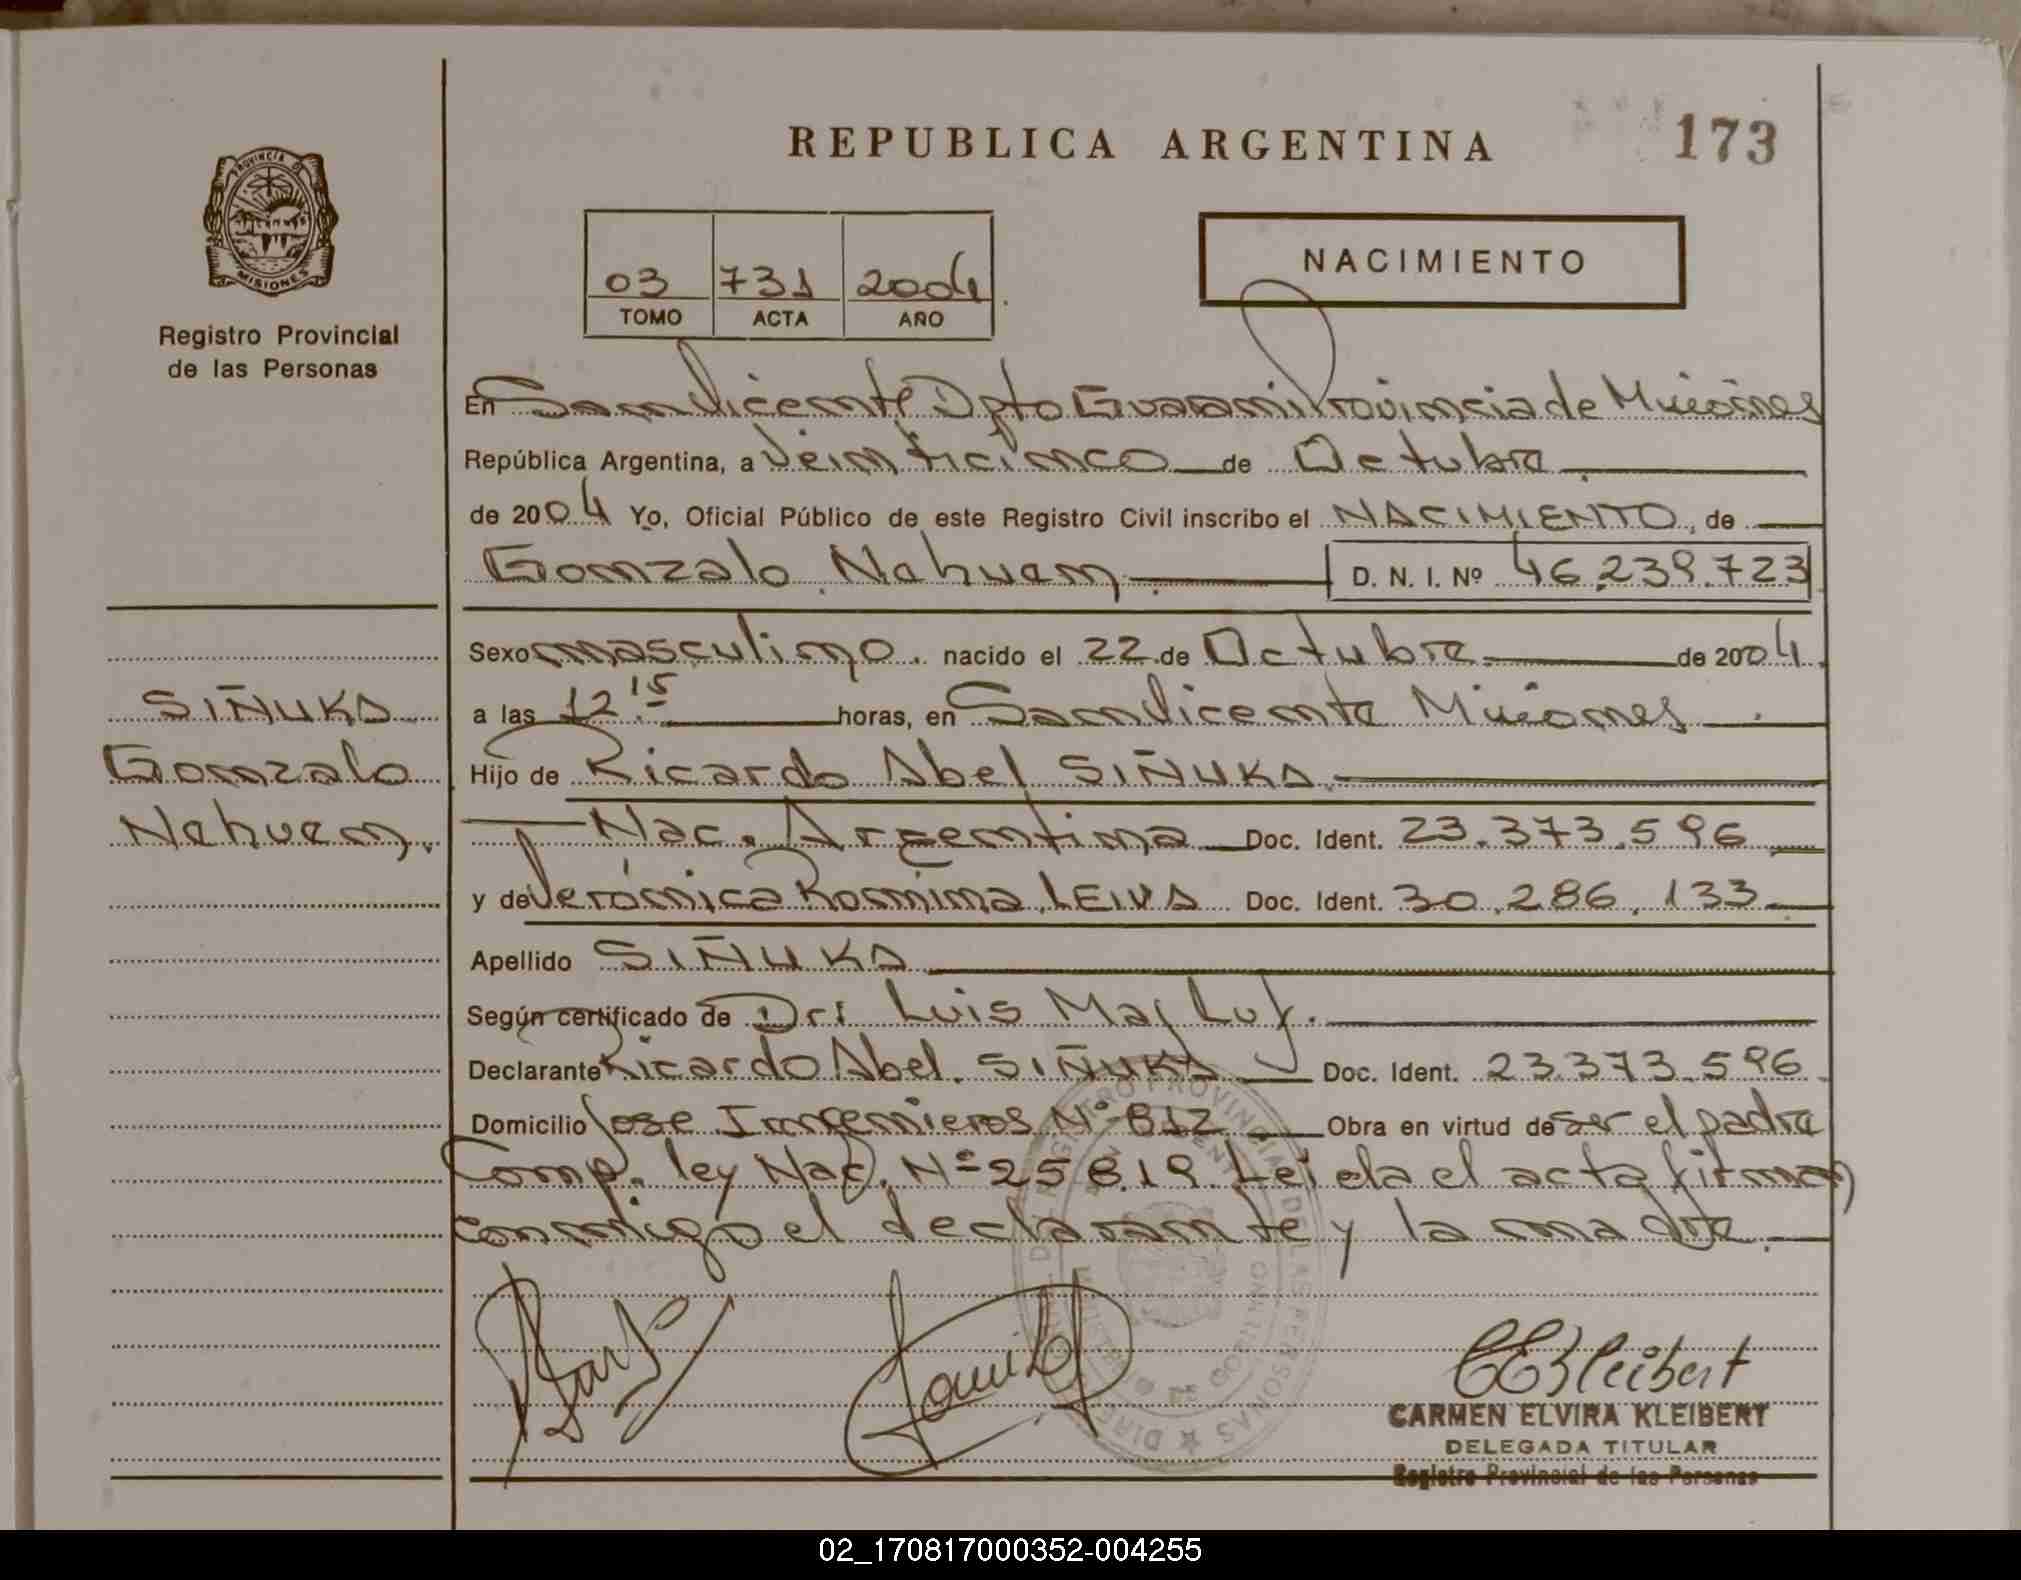 REPUBLICA ARGENTINA
173
PROVINCIA D
MISIONES
Registro Provincial
de las Personas
03 731 2004
TOMO ACTA AÑO
NACIMIENTO
En San Vicente Dpto Guarani Provincia de Misiones
República Argentina, a Veinticinco de Octubre
de 2004 Yo, Oficial Público de este Registro Civil inscribo el NACIMIENTO, de
Gonzalo Nahuen D. N. I. Nº 46.239.723
Sexo masculino. nacido el 22 de Octubre de 2004.
a las 12 15 horas, en San Vicente Misiones
Hijo de Ricardo Abel SIÑUKA
Nac. Argentina Doc. Ident. 23.373.596
y de Verónica Romina LEIVA Doc. Ident. 30.286.133
Apellido SIÑUKA
Según certificado de Dr: Luis Mayluf.
Declarante Ricardo Abel SIÑUKA Doc. Ident. 23.373.596
Domicilio Jose Ingenieros Nº 812 Obra en virtud de ser el padre
Comp. ley Nac. Nº 25.819. Leida el acta firman
conmigo el declarante y la madre.
SIÑUKA
Gonzalo
Nahuen.
CEKleibert
CARMEN ELVIRA KLEIBERT
DELEGADA TITULAR
Registro Provincial de las Personas
02_170817000352-004255